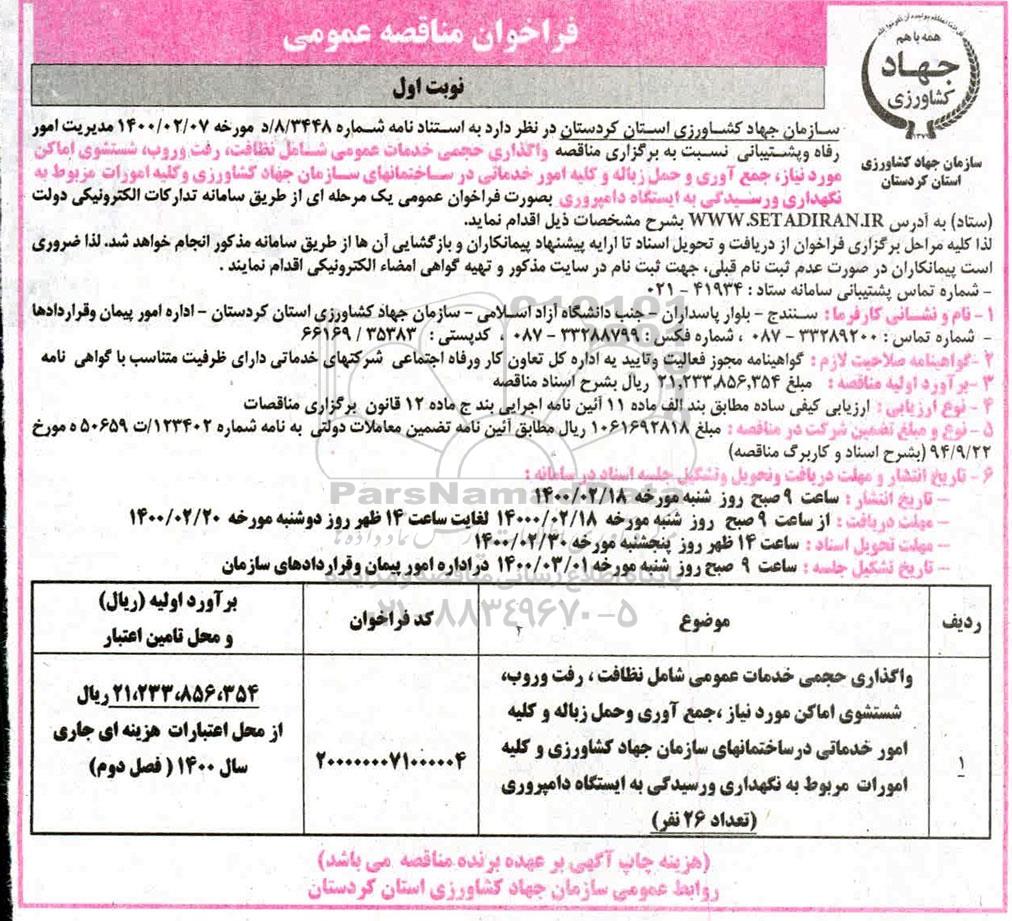 فراخوان مناقصه عمومی
نوبت اول
همه با هم
جهاد
کشاورزی
سازمان جهاد کشاورزی
استان کردستان
سازمان جهاد کشاورزی استان کردستان در نظر دارد به استناد نامه شماره ۸/۳۴۴۸/د مورخه ۱۴۰۰/۰۲/۰۷ مدیریت امور
رفاه وپشتیبانی نسبت به برگزاری مناقصه واگذاری حجمی خدمات عمومی شامل نظافت، رفت وروب، شستشوی اماکن
مورد نیاز، جمع آوری و حمل زباله و کلیه امور خدماتی در ساختمانهای سازمان جهاد کشاورزی وکلیه امورات مربوط به
نگهداری ورسیدگی به ایستگاه دامپروری بصورت فراخوان عمومی یک مرحله ای از طریق سامانه تدارکات الکترونیکی دولت
(ستاد) به آدرس WWW.SETADIRAN.IR بشرح مشخصات ذیل اقدام نماید.
لذا کلیه مراحل برگزاری فراخوان از دریافت و تحویل اسناد تا ارایه پیشنهاد پیمانکاران و بازگشایی آن ها از طریق سامانه مذکور انجام خواهد شد. لذا ضروری
است پیمانکاران در صورت عدم ثبت نام قبلی، جهت ثبت نام در سایت مذکور و تهیه گواهی امضاء الکترونیکی اقدام نمایند .
- شماره تماس پشتیبانی سامانه ستاد : ۴۱۹۳۴ - ۰۲۱
۱ - نام و نشانی کارفرما : سنندج - بلوار پاسداران - جنب دانشگاه آزاد اسلامی - سازمان جهاد کشاورزی استان کردستان - اداره امور پیمان وقراردادها
- شماره تماس : ۳۳۲۸۹۲۰۰ - ۰۸۷ ، شماره فکس : ۳۳۲۸۸۷۹۹ - ۰۸۷ ، کدپستی : ۳۵۳۸۳ / ۶۶۱۶۹
۲ -گواهینامه صلاحیت لازم : گواهینامه مجوز فعالیت وتایید یه اداره کل تعاون کار ورفاه اجتماعی شرکتهای خدماتی دارای ظرفیت متناسب با گواهی نامه
۳ -برآورد اولیه مناقصه : مبلغ ۲۱,۲۳۳,۸۵۶,۳۵۴ ریال بشرح اسناد مناقصه
۴ - نوع ارزیابی : ارزیابی کیفی ساده مطابق بند الف ماده ۱۱ آئین نامه اجرایی بند ج ماده ۱۲ قانون برگزاری مناقصات
۵ - نوع و مبلغ تضمین شرکت در مناقصه : مبلغ ۱۰۶۱۶۹۲۸۱۸ ریال مطابق آئین نامه تضمین معاملات دولتی به نامه شماره ۱۲۳۴۰۲/ت ۵۰۶۵۹ ه مورخ
۹۴/۹/۲۲ (بشرح اسناد و کاربرگ مناقصه)
۶ - تاریخ انتشار و مهلت دریافت وتحویل وتشکیل جلسه اسناد در سامانه :
- تاریخ انتشار : ساعت ۹ صبح روز شنبه مورخه ۱۴۰۰/۰۲/۱۸
- مهلت دریافت : از ساعت ۹ صبح روز شنبه مورخه ۱۴۰۰۰/۰۲/۱۸ لغایت ساعت ۱۴ ظهر روز دوشنبه مورخه ۱۴۰۰/۰۲/۲۰
- مهلت تحویل اسناد : ساعت ۱۴ ظهر روز پنجشنبه مورخه ۱۴۰۰/۰۲/۳۰
- تاریخ تشکیل جلسه : ساعت ۹ صبح روز شنبه مورخه ۱۴۰۰/۰۳/۰۱ دراداره امور پیمان وقراردادهای سازمان
ParsNamadData
پایگاه اطلاع رسانی مناقصه و مزایده
۰۲۱-۸۸۳۴۹۶۷۰-۵
ردیف
موضوع
کد فراخوان
برآورد اولیه (ریال)
و محل تامین اعتبار
۱
واگذاری حجمی خدمات عمومی شامل نظافت ، رفت وروب،
شستشوی اماکن مورد نیاز ،جمع آوری وحمل زباله و کلیه
امور خدماتی درساختمانهای سازمان جهاد کشاورزی و کلیه
امورات مربوط به نگهداری ورسیدگی به ایستگاه دامپروری
(تعداد ۲۶ نفر)
۲۰۰۰۰۰۰۰۷۱۰۰۰۰۰۴
۲۱،۲۳۳،۸۵۶،۳۵۴ ریال
از محل اعتبارات هزینه ای جاری
سال ۱۴۰۰ ( فصل دوم)
(هزینه چاپ آگهی بر عهده برنده مناقصه می باشد)
روابط عمومی سازمان جهاد کشاورزی استان کردستان